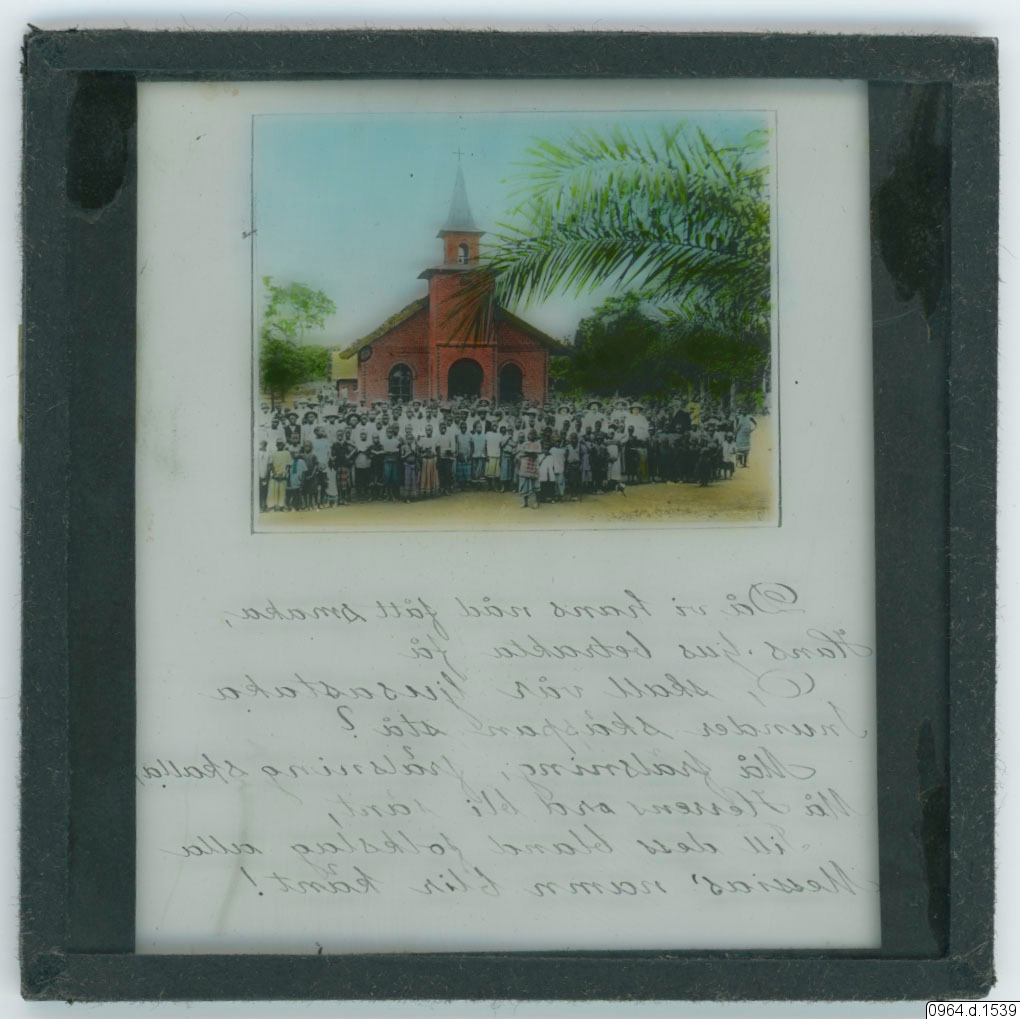 Då vi hans nåd fått smaka,
Hans ljus betrakta få
O, skall vår ljusastaka
Inunder skäpan stå?
Må frälsning, frälsning skalla,
Må Herrens ord bli sant,
Till dess bland folkslag alla
Messias' namn blir känt!
0964.d.1539